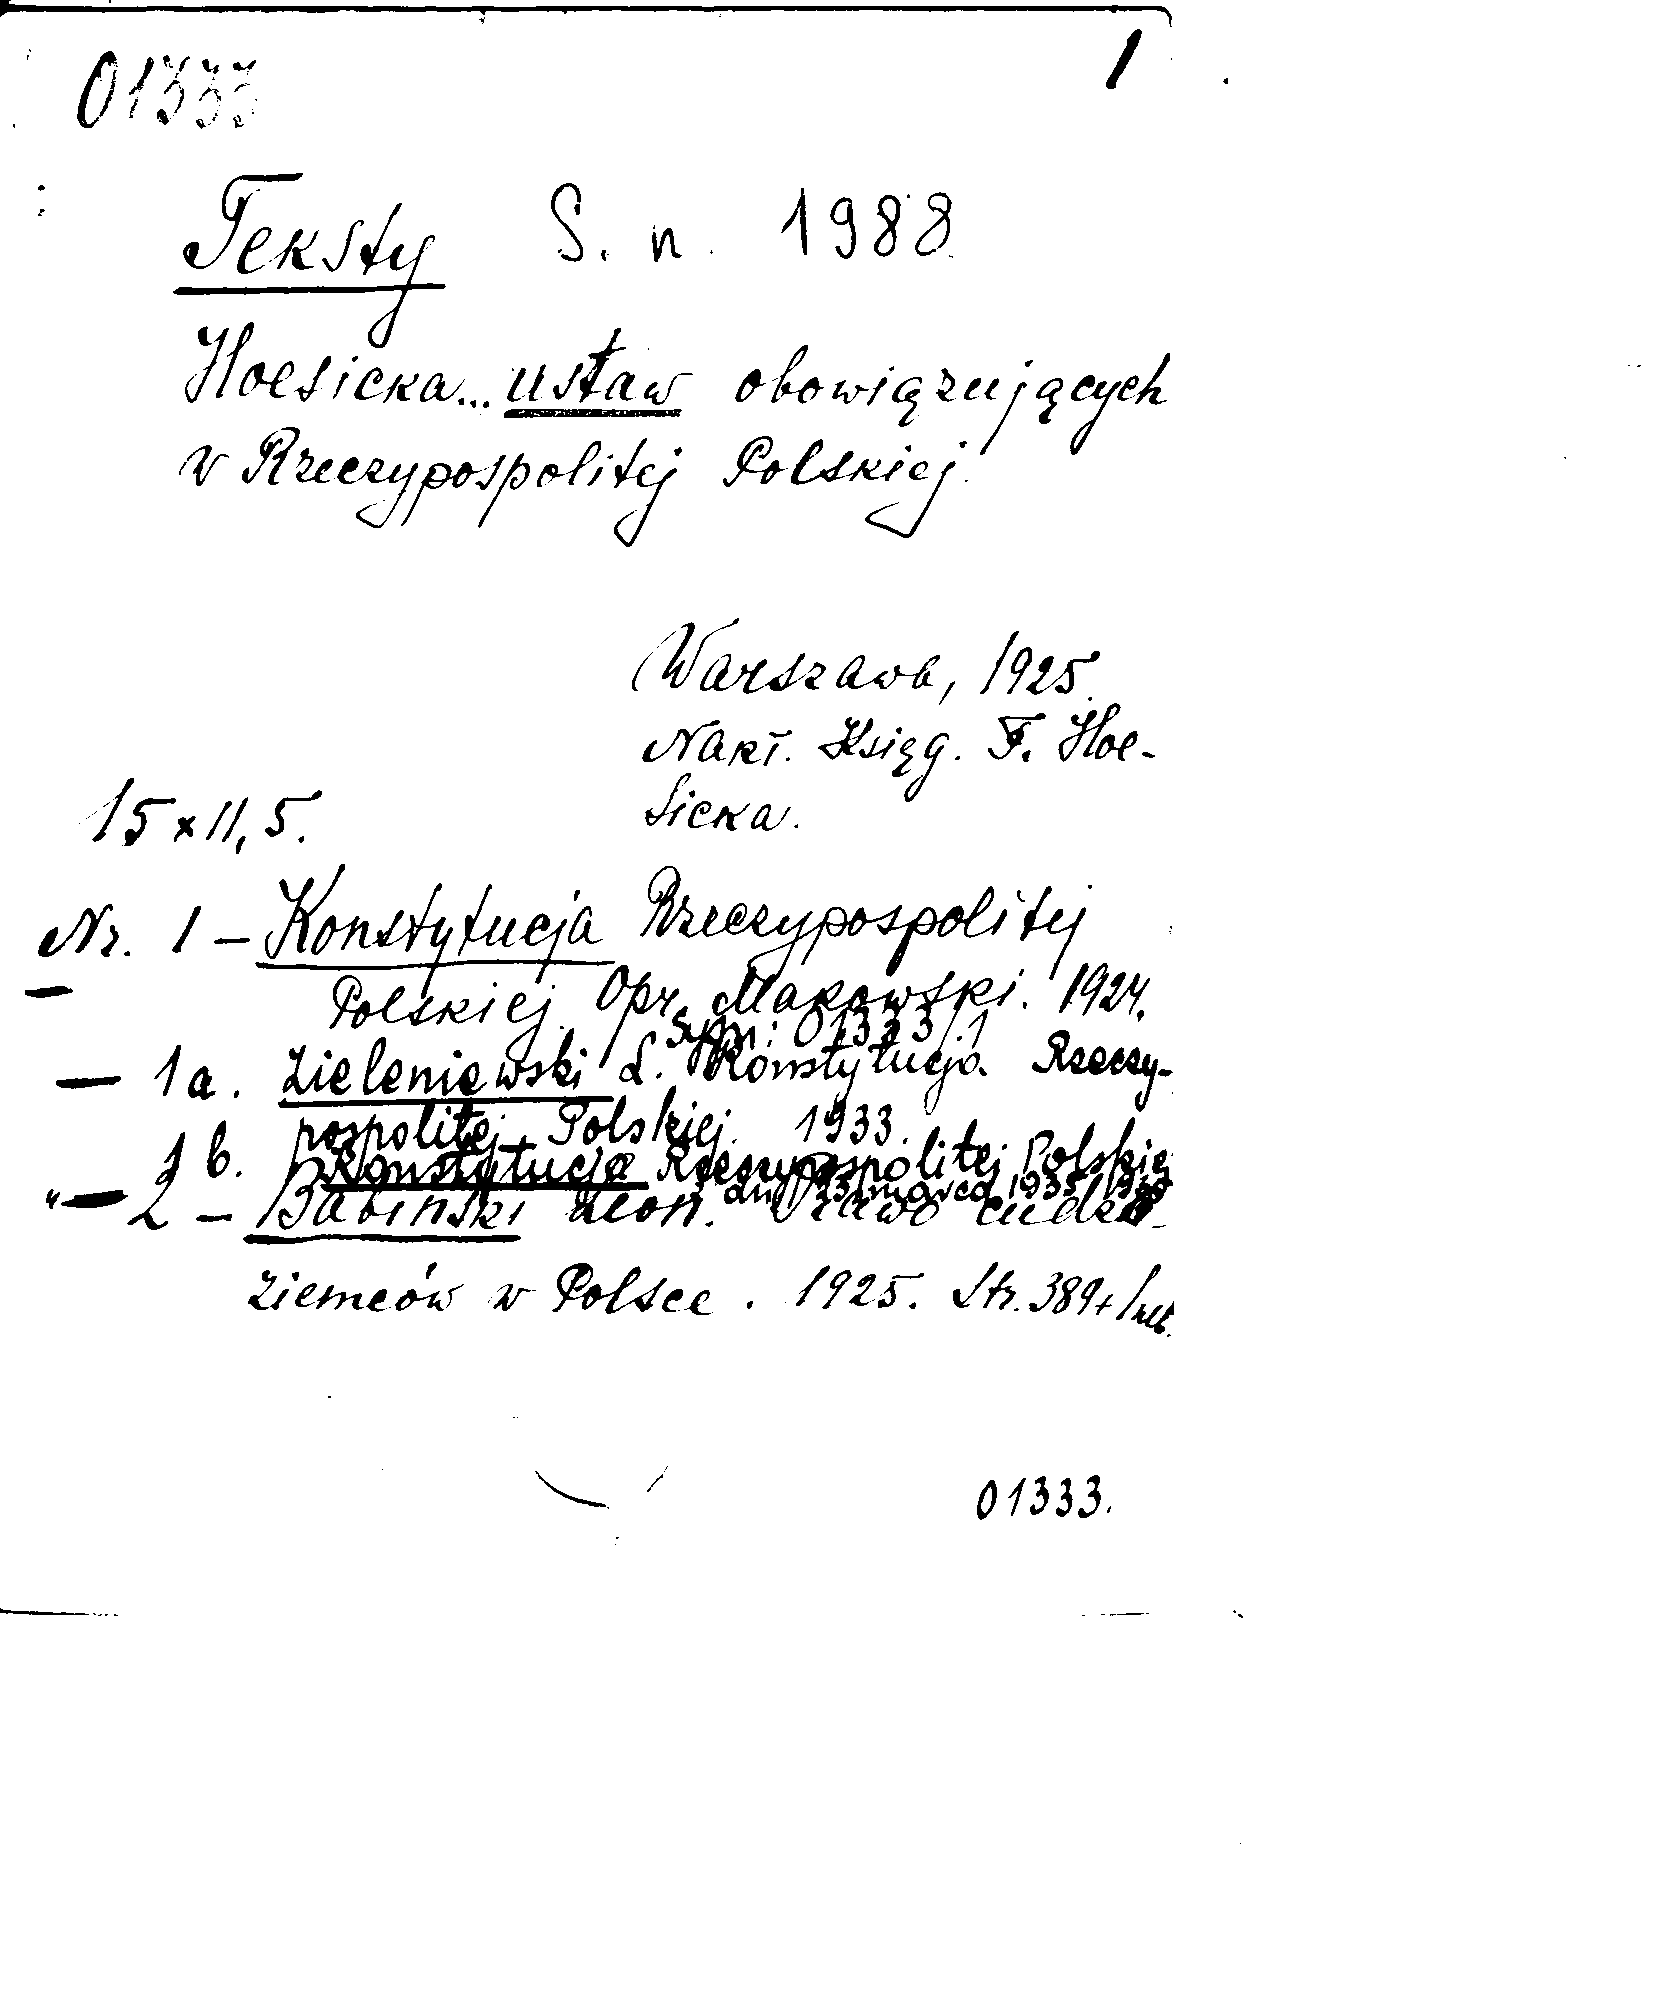 01333
1
Teksty S. n. 1988
Hoesicka... ustaw obowiązujących
w Rzeczypospolitej Polskiej.
Warszawa, 1925.
Nakł. Księg. F. Hoe-
sicka.
15 x 11,5.
Nr. 1 - Konstytucja Rzeczypospolitej
Polskiej. Opr. Makowski. 1924.
Sygn: 01333/1
1a. Zieleniewski L. Konstytucja Rzeczy-
pospolitej Polskiej. 1933.
1b. Konstytucja Rzeczypospolitej Polskiej
23 marca 1935
"- 2 - Babiński Leon. Prawo cudzo-
ziemców w Polsce. 1925. Str. 389+1 nlb.
01333.